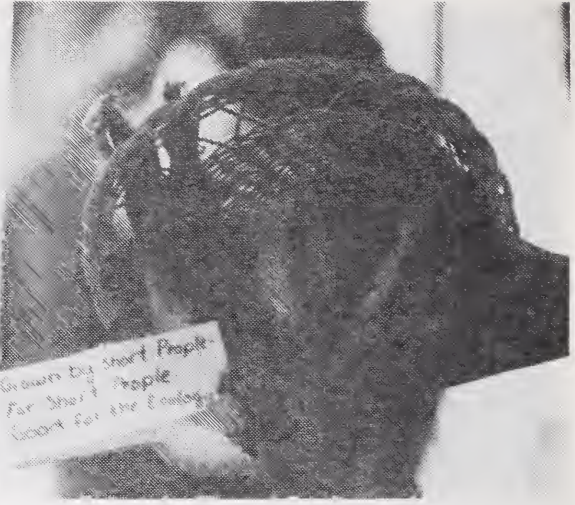 Grown by Short People
For Short People
Good for the Ecology